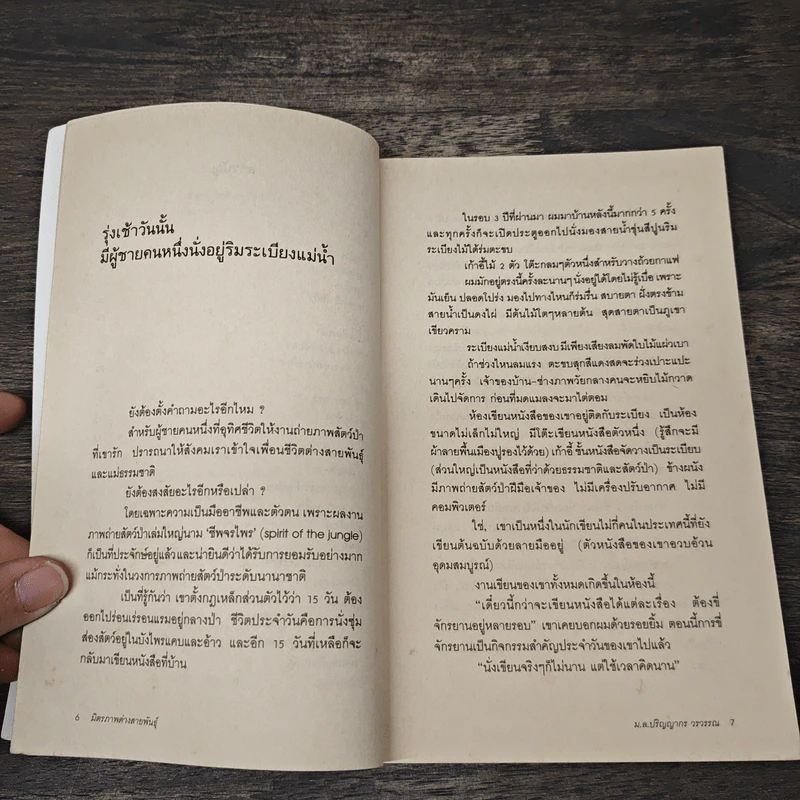 รุ่งเช้าวันนั้น
มีผู้ชายคนหนึ่งนั่งอยู่ริมระเบียงแม่น้ำ
ยังต้องตั้งคำถามอะไรอีกไหม ?
สำหรับผู้ชายคนหนึ่งที่อุทิศชีวิตให้งานถ่ายภาพสัตว์ป่า
ที่เขารัก ปรารถนาให้สังคมเราเข้าใจเพื่อนชีวิตต่างสายพันธุ์
และแม่ธรรมชาติ
ยังต้องสงสัยอะไรอีกหรือเปล่า ?
โดยเฉพาะความเป็นมืออาชีพและตัวตน เพราะผลงาน
ภาพถ่ายสัตว์ป่าเล่มใหญ่นาม 'ชีพจรไพร' (spirit of the jungle)
ก็เป็นที่ประจักษ์อยู่แล้วและน่ายินดีว่าได้รับการยอมรับอย่างมาก
แม้กระทั่งในวงการภาพถ่ายสัตว์ป่าระดับนานาชาติ
เป็นที่รู้กันว่า เขาตั้งกฎเหล็กส่วนตัวไว้ว่า 15 วัน ต้อง
ออกไปร่อนเร่รอนแรมอยู่กลางป่า ชีวิตประจำวันคือการนั่งซุ่ม
ส่องสัตว์อยู่ในบังไพรแคบและอ้าว และอีก 15 วันที่เหลือก็จะ
กลับมาเขียนหนังสือที่บ้าน
6 มิตรภาพต่างสายพันธุ์
ในรอบ 3 ปีที่ผ่านมา ผมมาบ้านหลังนี้มากกว่า 5 ครั้ง
และทุกครั้งก็จะเปิดประตูออกไปนั่งมองสายน้ำขุ่นสีปูนริม
ระเบียงไม้ใต้ร่มตะขบ
เก้าอี้ไม้ 2 ตัว โต๊ะกลมๆตัวหนึ่งสำหรับวางถ้วยกาแฟ
ผมมักอยู่ตรงนี้ครั้งละนานๆ นั่งอยู่ได้โดยไม่รู้เบื่อ เพราะ
มันเย็น ปลอดโปร่ง มองไปทางไหนก็ร่มรื่น สบายตา ฝั่งตรงข้าม
สายน้ำเป็นดงไผ่ มีต้นไม้โตๆหลายต้น สุดสายตาเป็นภูเขา
เขียวคราม
ระเบียงแม่น้ำเงียบสงบ มีเพียงเสียงลมพัดใบไม้แผ่วเบา
ถ้าช่วงไหนลมแรง ตะขบสุกสีแดงสดจะร่วงเปาะแปะ
นานๆครั้ง เจ้าของบ้าน-ช่างภาพวัยกลางคนจะหยิบไม้กวาด
เดินไปจัดการ ก่อนที่มดแมลงจะมาไต่ตอม
ห้องเขียนหนังสือของเขาอยู่ติดกับระเบียง เป็นห้อง
ขนาดไม่เล็กไม่ใหญ่ มีโต๊ะเขียนหนังสือตัวหนึ่ง (รู้สึกจะมี
ผ้าลายพื้นเมืองปูรองไว้ด้วย) เก้าอี้ ชั้นหนังสือจัดวางเป็นระเบียบ
(ส่วนใหญ่เป็นหนังสือที่ว่าด้วยธรรมชาติและสัตว์ป่า) ข้างผนัง
มีภาพถ่ายสัตว์ป่าฝีมือเจ้าของ ไม่มีเครื่องปรับอากาศ ไม่มี
คอมพิวเตอร์
ใช่, เขาเป็นหนึ่งในนักเขียนไม่กี่คนในประเทศนี้ที่ยัง
เขียนต้นฉบับด้วยลายมืออยู่ (ตัวหนังสือของเขาอวบอ้วน
อุดมสมบูรณ์)
งานเขียนของเขาทั้งหมดเกิดขึ้นในห้องนี้
“เดี๋ยวนี้กว่าจะเขียนหนังสือได้แต่ละเรื่อง ต้องขี่
จักรยานอยู่หลายรอบ” เขาเคยบอกผมด้วยรอยยิ้ม ตอนนี้การขี่
จักรยานเป็นกิจกรรมสำคัญประจำวันของเขาไปแล้ว
“นั่งเขียนจริงๆก็ไม่นาน แต่ใช้เวลาคิดนาน”
ม.ล.ปริญญากร วรวรรณ 7